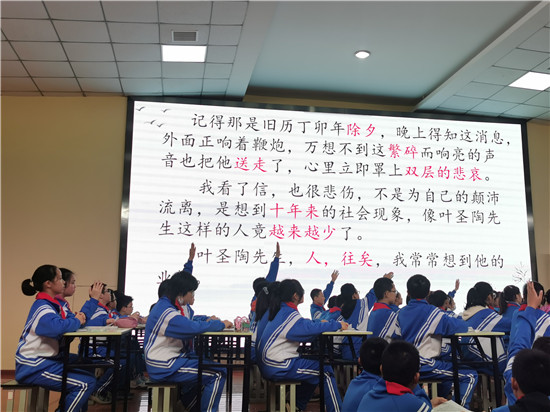 记得那是旧历丁卯年除夕，晚上得知这消息，
外面正响着鞭炮，万想不到这繁碎而响亮的声
音也把他送走了，心里立即罩上双层的悲哀。
我看了信，也很悲伤，不是为自己的颠沛
流离，是想到十年来的社会现象，像叶圣陶先
生这样的人竟越来越少了。
叶圣陶先生，人，往矣，我常常想到他的
业